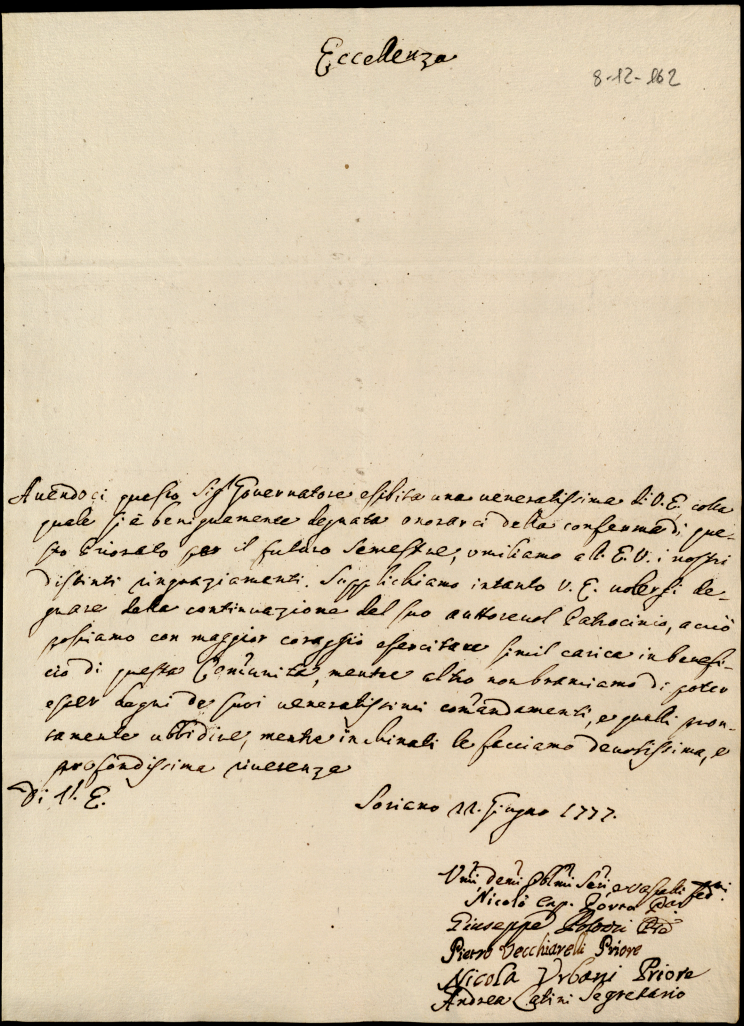 Eccellenza
8-12-162
Avendoci questo Sig.r Governatore esibita una veneratissima di V.E. colla
quale si è benignamente degnata onorarci della conferma di que-
sto Priorato per il futuro Semestre, umiliamo all' E.V. i nostri
distinti ringraziamenti. Supplichiamo intanto V.E. volersi de-
gnare della continuazione del suo auttorevol Patrocinio, acciò
possiamo con maggior coraggio esercitare simil carica in benefi-
cio di questa Comunità, mentre altro non bramiamo di poter
esser degni de suoi veneratissimi comandamenti, e quelli pron-
tamente ubbidire, mentre inchinati le facciamo devotissima, e
profondissima riverenza
Di V. E.
Soriano 22. Giugno 1777.
Umi devmi Obbmi Seri, e vassalli fedmi
Nicolò
Giuseppe
Pietro Vecchiarelli Priore
Nicola Urbani Priore
Andrea Catini Segretario